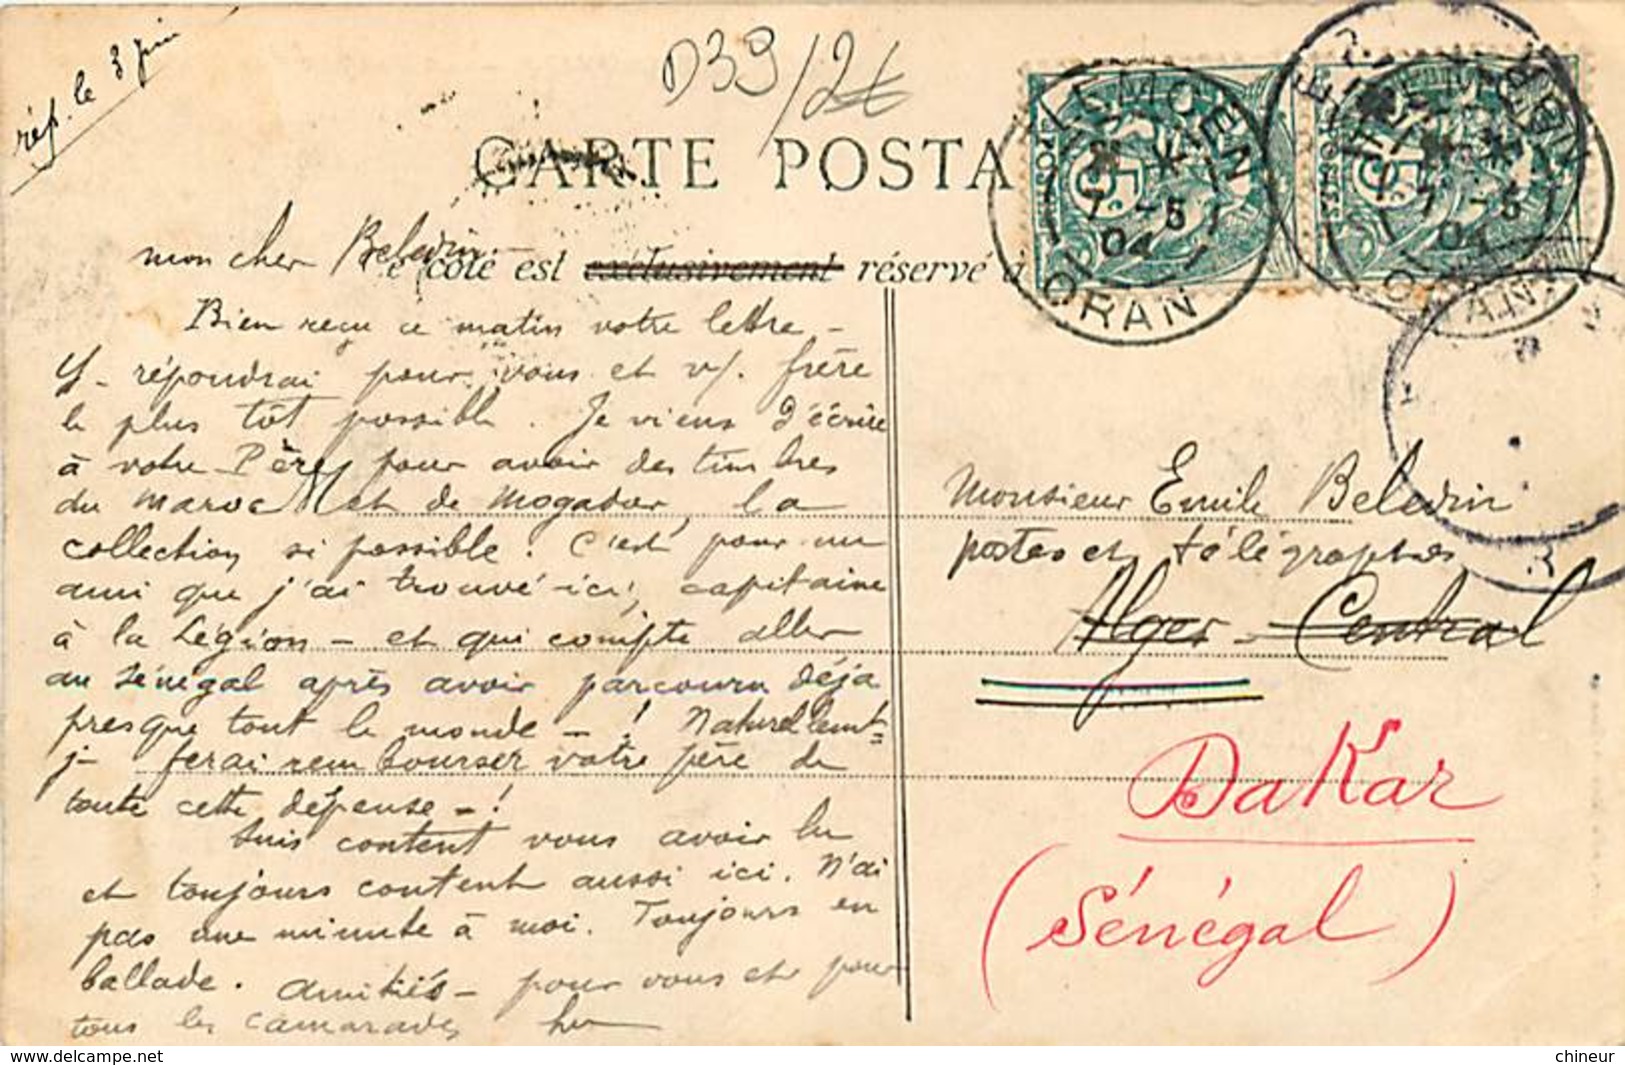 rép. le 3 juin
D39/2€
CARTE POSTA
TLEMCEN
7-5
04
ORAN
TLEMCEN
7-5
04
ORAN
mon cher Beledin
e côté est exclusivement réservé à
Bien reçu ce matin votre lettre -
J- répondrai pour vous et v/. frère
le plus tôt possible. Je viens d'écrire
à votre Père, pour avoir des timbres
du Maroc et de Mogador, la
collection si possible. C'est pour un
ami que j'ai trouvé ici, capitaine
à la Légion - et qui compte aller
au Sénégal après avoir parcouru déjà
presque tout le monde - ! Naturellemt
j- ferai rembourser votre père de
toute cette dépense - !
Suis content vous avoir lu
et toujours content aussi ici. N'ai
pas une minute à moi. Toujours en
ballade. Amitiés - pour vous et pour
tous les camarades
Monsieur Emile Beledin
postes et télégraphes
Alger - Central
Dakar
(Sénégal)
www.delcampe.net
chineur